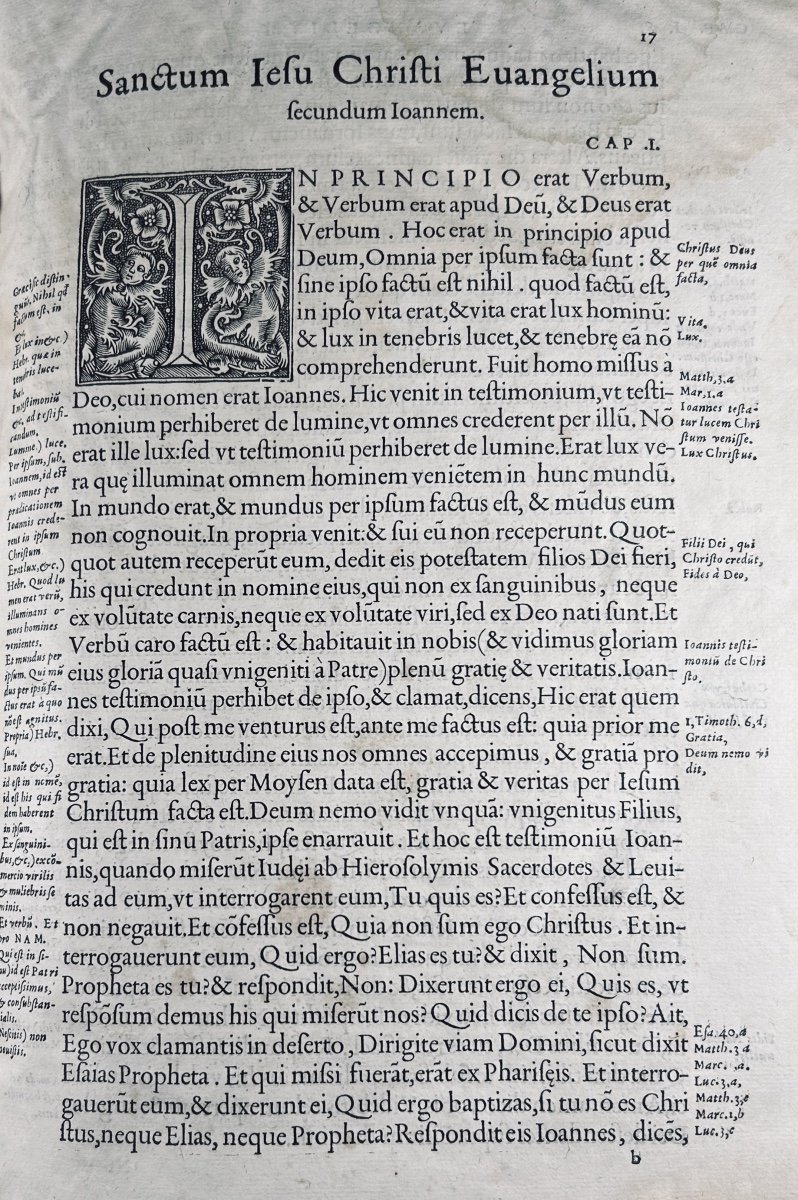 17
Sanctum Ieſu Chriſti Euangelium
ſecundum Ioannem.
CAP .I.
IN PRINCIPIO erat Verbum,
& Verbum erat apud Deū, & Deus erat
Verbum . Hoc erat in principio apud
Deum,Omnia per ipſum facta ſunt : &
ſine ipſo factū eſt nihil . quod factū eſt,
in ipſo vita erat,&vita erat lux hominū:
& lux in tenebris lucet,& tenebrę eā nō
comprehenderunt. Fuit homo miſſus à
Deo,cui nomen erat Ioannes. Hic venit in teſtimonium,vt teſti-
monium perhiberet de lumine,vt omnes crederent per illū. Nō
erat ille lux:ſed vt teſtimoniū perhiberet de lumine.Erat lux ve-
ra quę illuminat omnem hominem veniētem in hunc mundū.
In mundo erat,& mundus per ipſum factus eſt, & mūdus eum
non cognouit.In propria venit:& ſui eū non receperunt.Quot-
quot autem receperūt eum, dedit eis poteſtatem filios Dei fieri,
his qui credunt in nomine eius,qui non ex ſanguinibus, neque
ex volūtate carnis,neque ex volūtate viri,ſed ex Deo nati ſunt.Et
Verbū caro factū eſt : & habitauit in nobis(& vidimus gloriam
eius gloriā quaſi vnigeniti à Patre)plenū gratię & veritatis.Ioan-
nes teſtimoniū perhibet de ipſo,& clamat,dicens,Hic erat quem
dixi,Qui poſt me venturus eſt,ante me factus eſt: quia prior me
erat.Et de plenitudine eius nos omnes accepimus , & gratiā pro
gratia: quia lex per Moyſen data eſt, gratia & veritas per Ieſum
Chriſtum facta eſt.Deum nemo vidit vnquā: vnigenitus Filius,
qui eſt in ſinu Patris,ipſe enarrauit . Et hoc eſt teſtimoniū Ioan-
nis,quando miſerūt Iudęi ab Hieroſolymis Sacerdotes & Leui-
tas ad eum,vt interrogarent eum,Tu quis es?Et confeſſus eſt, &
non negauit.Et cōfeſſus eſt,Quia non ſum ego Chriſtus . Et in-
terrogauerunt eum, Quid ergo?Elias es tu?& dixit , Non ſum.
Propheta es tu?& reſpondit,Non: Dixerunt ergo ei, Quis es, vt
reſpōſum demus his qui miſerūt nos? Quid dicis de te ipſo? Ait,
Ego vox clamantis in deſerto , Dirigite viam Domini,ſicut dixit
Eſaias Propheta . Et qui miſſi fuerāt,erāt ex Phariſęis. Et interro-
gauerūt eum,& dixerunt ei,Quid ergo baptizas,ſi tu nō es Chri
ſtus,neque Elias, neque Propheta?Reſpondit eis Ioannes, dicēs,
b
Chriſtus Deus
per quē omnia
facta,
Vita.
Lux.
Matth,3,a
Mar,1,a
Ioannes teſta-
tur lucem Chri
ſtum veniſſe.
Lux Chriſtus.
Filii Dei, qui
Chriſto credūt,
Fides à Deo,
Ioannis teſti-
moniū de Chri
ſto.
1,Timoth. 6,d,
Gratia,
Deum nemo vi
dit,
Eſa. 40,a
Matth. 3 a
Marc. 1.a.
Luc.3,a,
Matth.3,e
Marc.1,b
Luc.3,c
Græciſc diſtin-
Nihil qd
factum eſt, in
Et lux in &c)
Hebr. quæ in
tenebris luce-
bat.
In teſtimoniū
&c, ad teſtifi-
candum.
Lumine.) luce.
Per ipſum, ſub.
Ioannem, id eſt
vt omnes per
prædicationem
Ioannis crede-
rent in ipſum
Chriſtum.
Erat lux,&c,)
Hebr. Quod lu
men erat verū,
illuminans o-
mnes homines
venientes.
Et mundus per
ipſum. Qui mū
dus per ipsū fa-
ctus erat à quo
nō eſt agnitus.
Propria) Hebr,
ſua,
In noīe &c,)
id eſt in nomē,
id eſt his qui fi
dem haberent
in ipſum,
Ex ſanguini-
bus,&c,) ex cō-
mercio virilis
& muliebris ſe
minis,
Et verbū. Et
pro NAM.
Qui eſt in ſi-
nu) id eſt Patri
acceptiſſimus,
& conſubſtan-
tialis.
Neſcitis) non
nouiſtis,